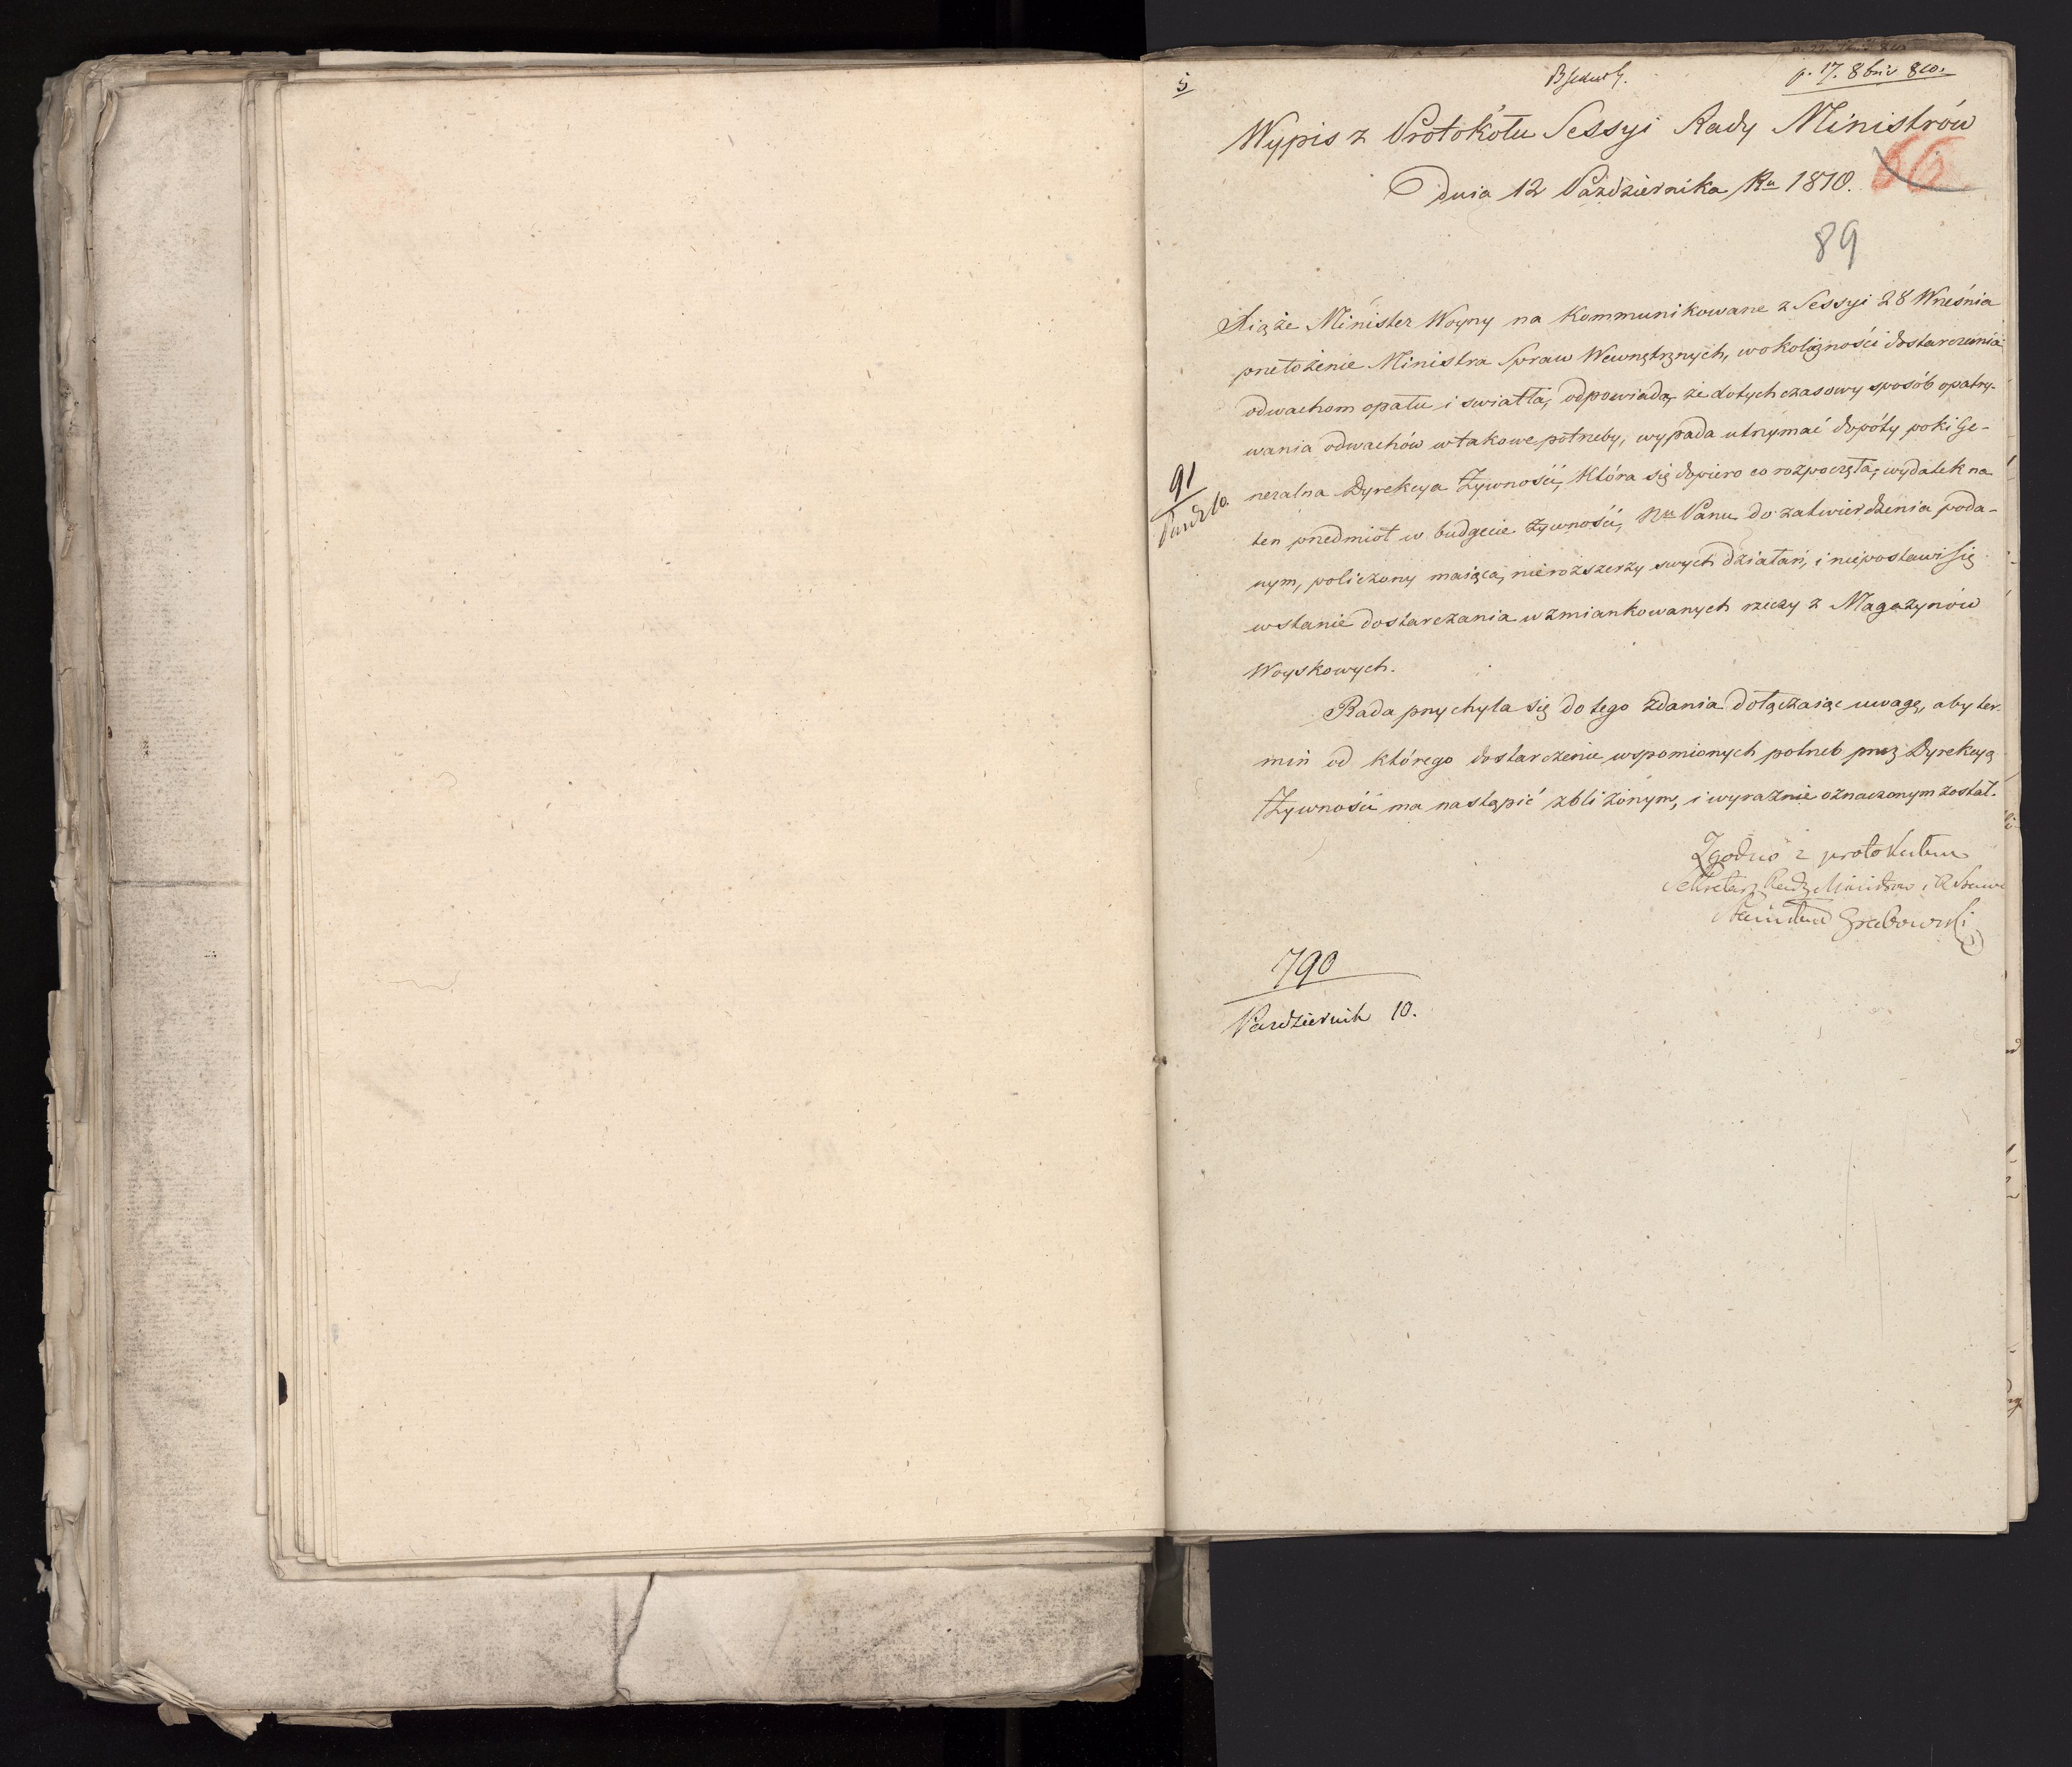 5
p. 17. 8bris 810.
Wypis z Protokółu Sessyi Rady Ministrów
Dnia 12 Października Ru 1810.
66
89
Xiąże Minister Woyny na kommunikowane z Sessyi 28 Września
przełożenie Ministra Spraw Wewnętrznych, w okoliczności dostarczenia
odwachom opału i swiatła, odpowiada, że dotychczasowy sposób opatry-
wania odwachów w takowe potrzeby, wypada utrzymać dopóty poki Ge-
neralna Dyrekcya Żywności, która się dopiero co rozpoczęła, wydatek na
ten przedmiot w budgecie żywności, NP Panu do zatwierdzenia poda-
nym, policzony maiąca, nierozszerzy swych działań, i niepostawi się
w stanie dostarczania wzmiankowanych rzeczy z Magazynów
Woyskowych.
91
Pazdz 10.
Rada przychyla się do tego zdania dołączaiąc uwagę, aby ter-
min od którego dostarczenie wspomionych potrzeb przez Dyrekcyą
Żywności ma nastąpić zbliżonym, i wyraznie oznaczonym został.
Zgodno z protokułem
Sekretarz Rady Ministrow i R Stanu
Stanisław Grabowski
790
Pazdziernik 10.